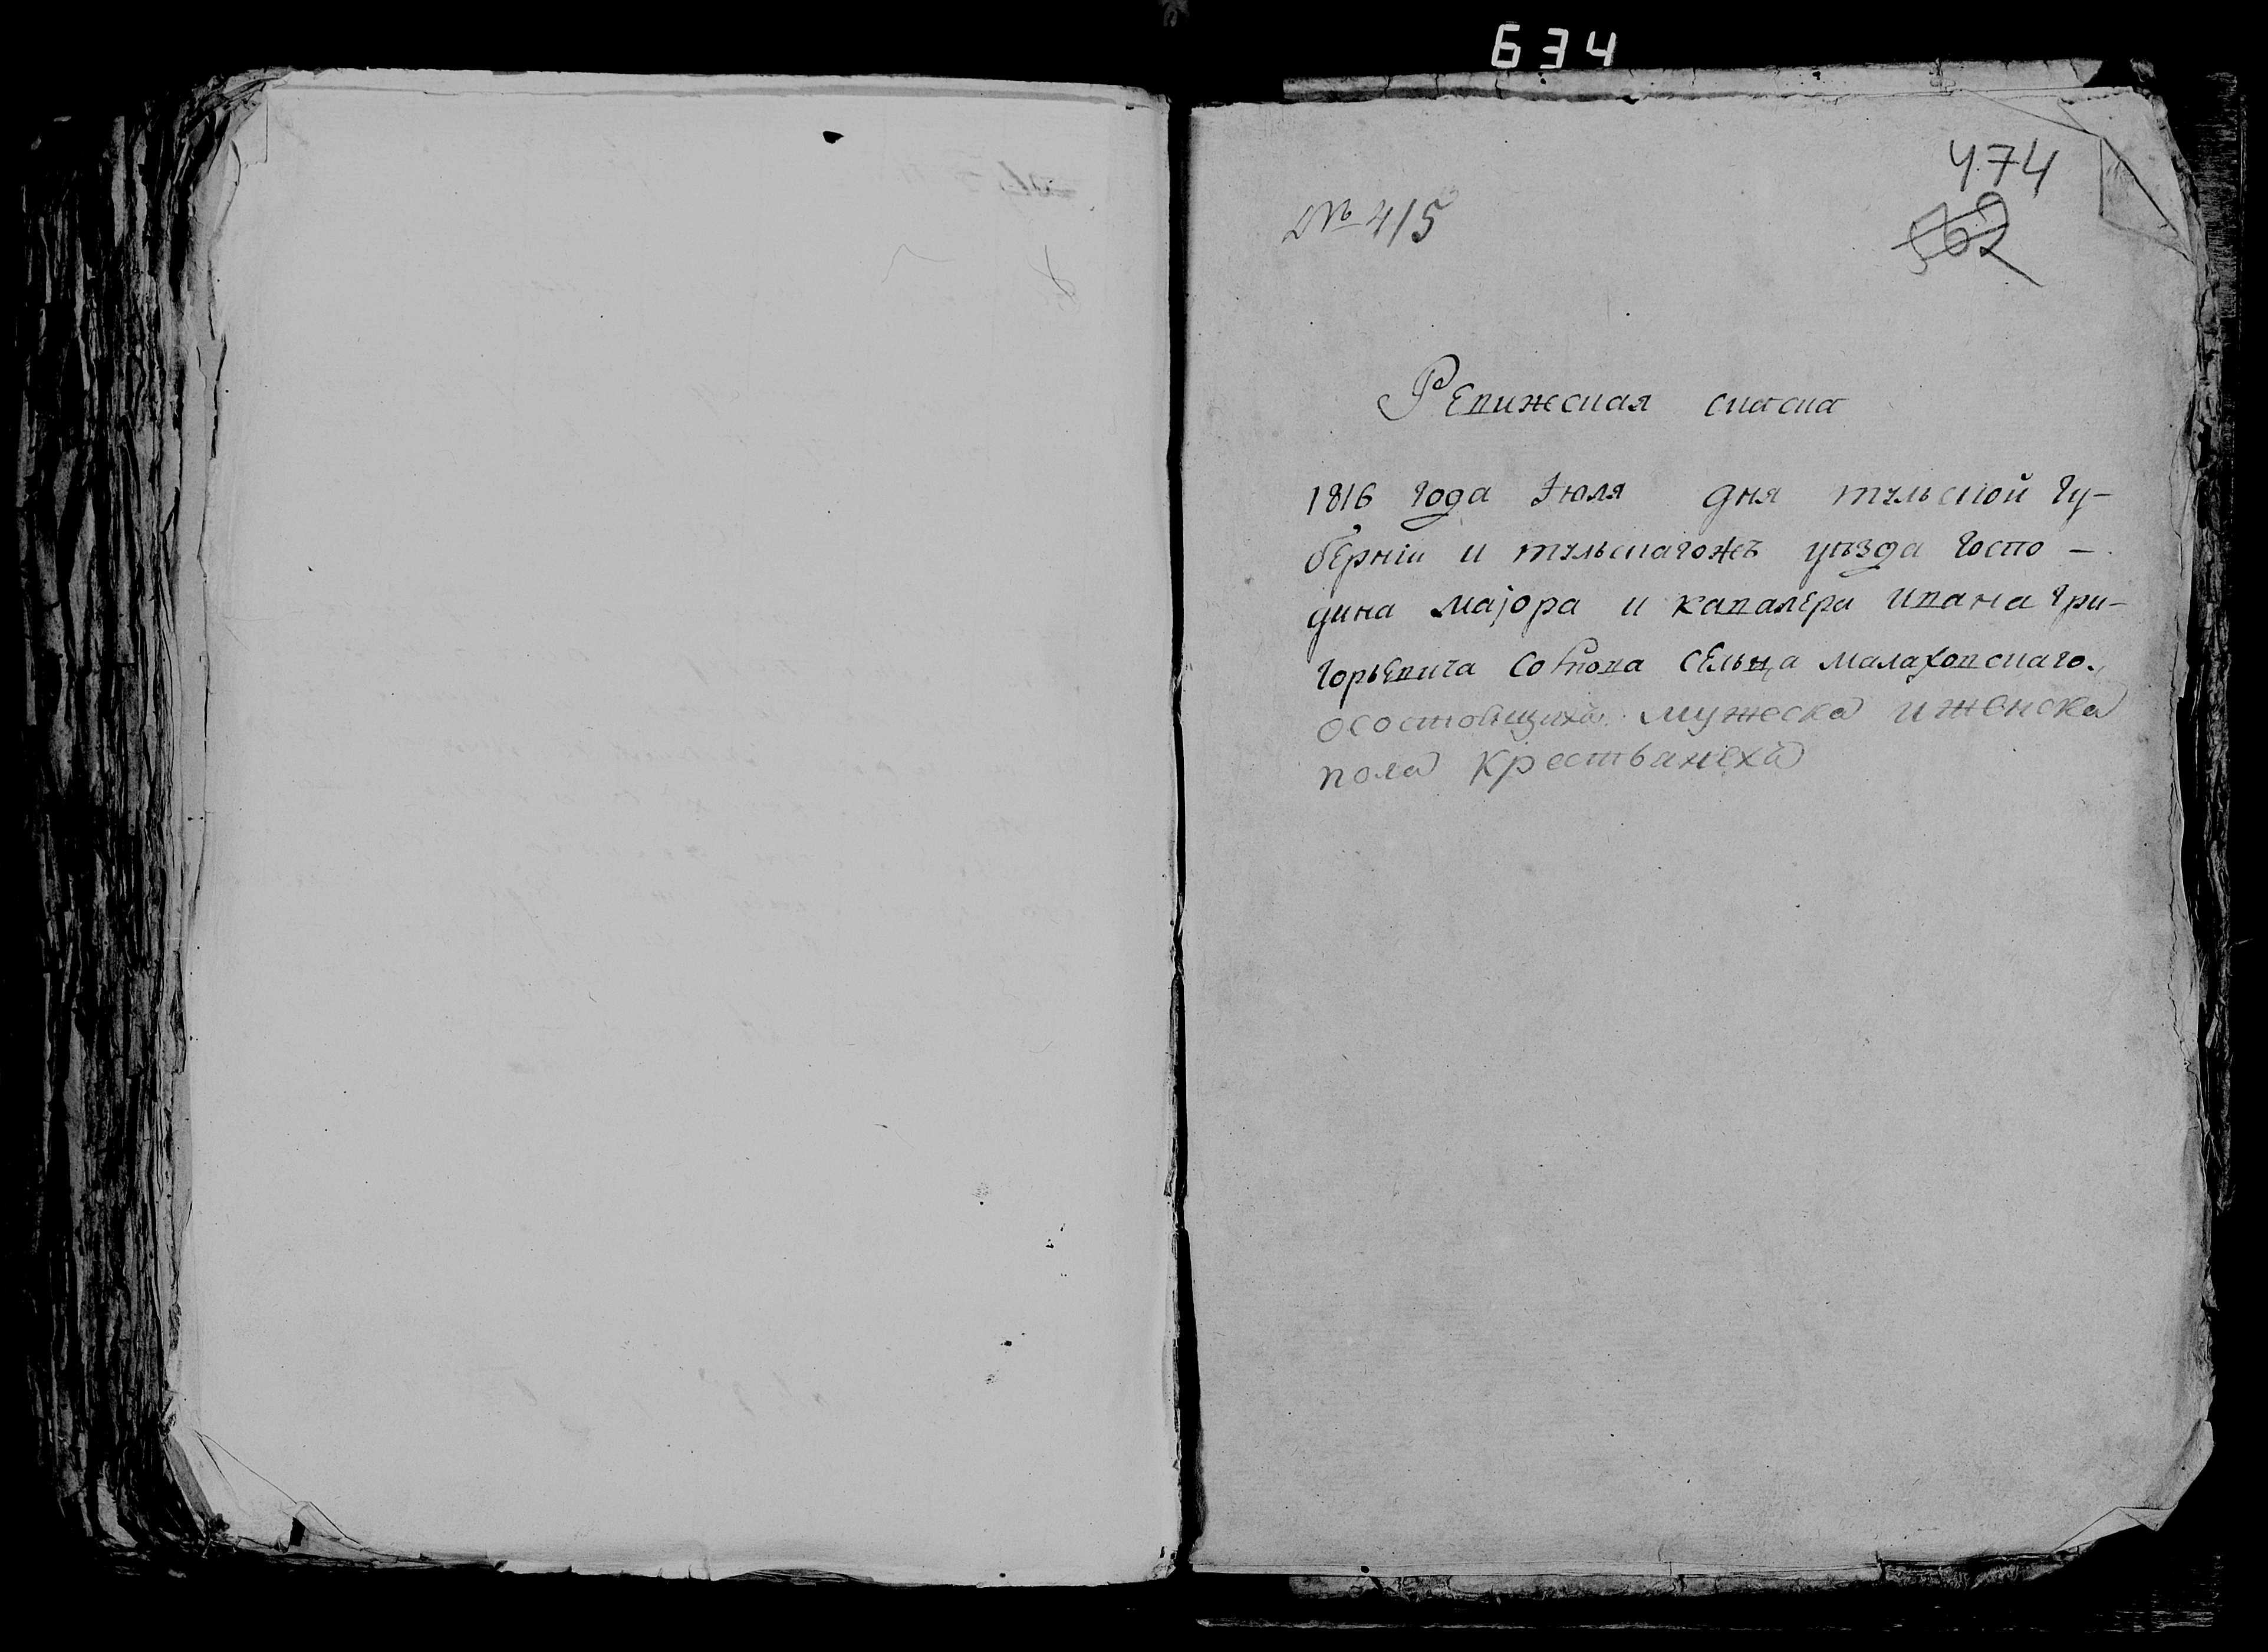 634
474
562
№ 415
Ревижская скаска
1816 года Июля дня тульской гу-
берніи и тульскагожъ уѣзда Госпо-
дина маіора и кавалера ивана гри-
горьевича сельца малаховскаго.
осостоящихъ мужеска иженска
пола крестьянехъ